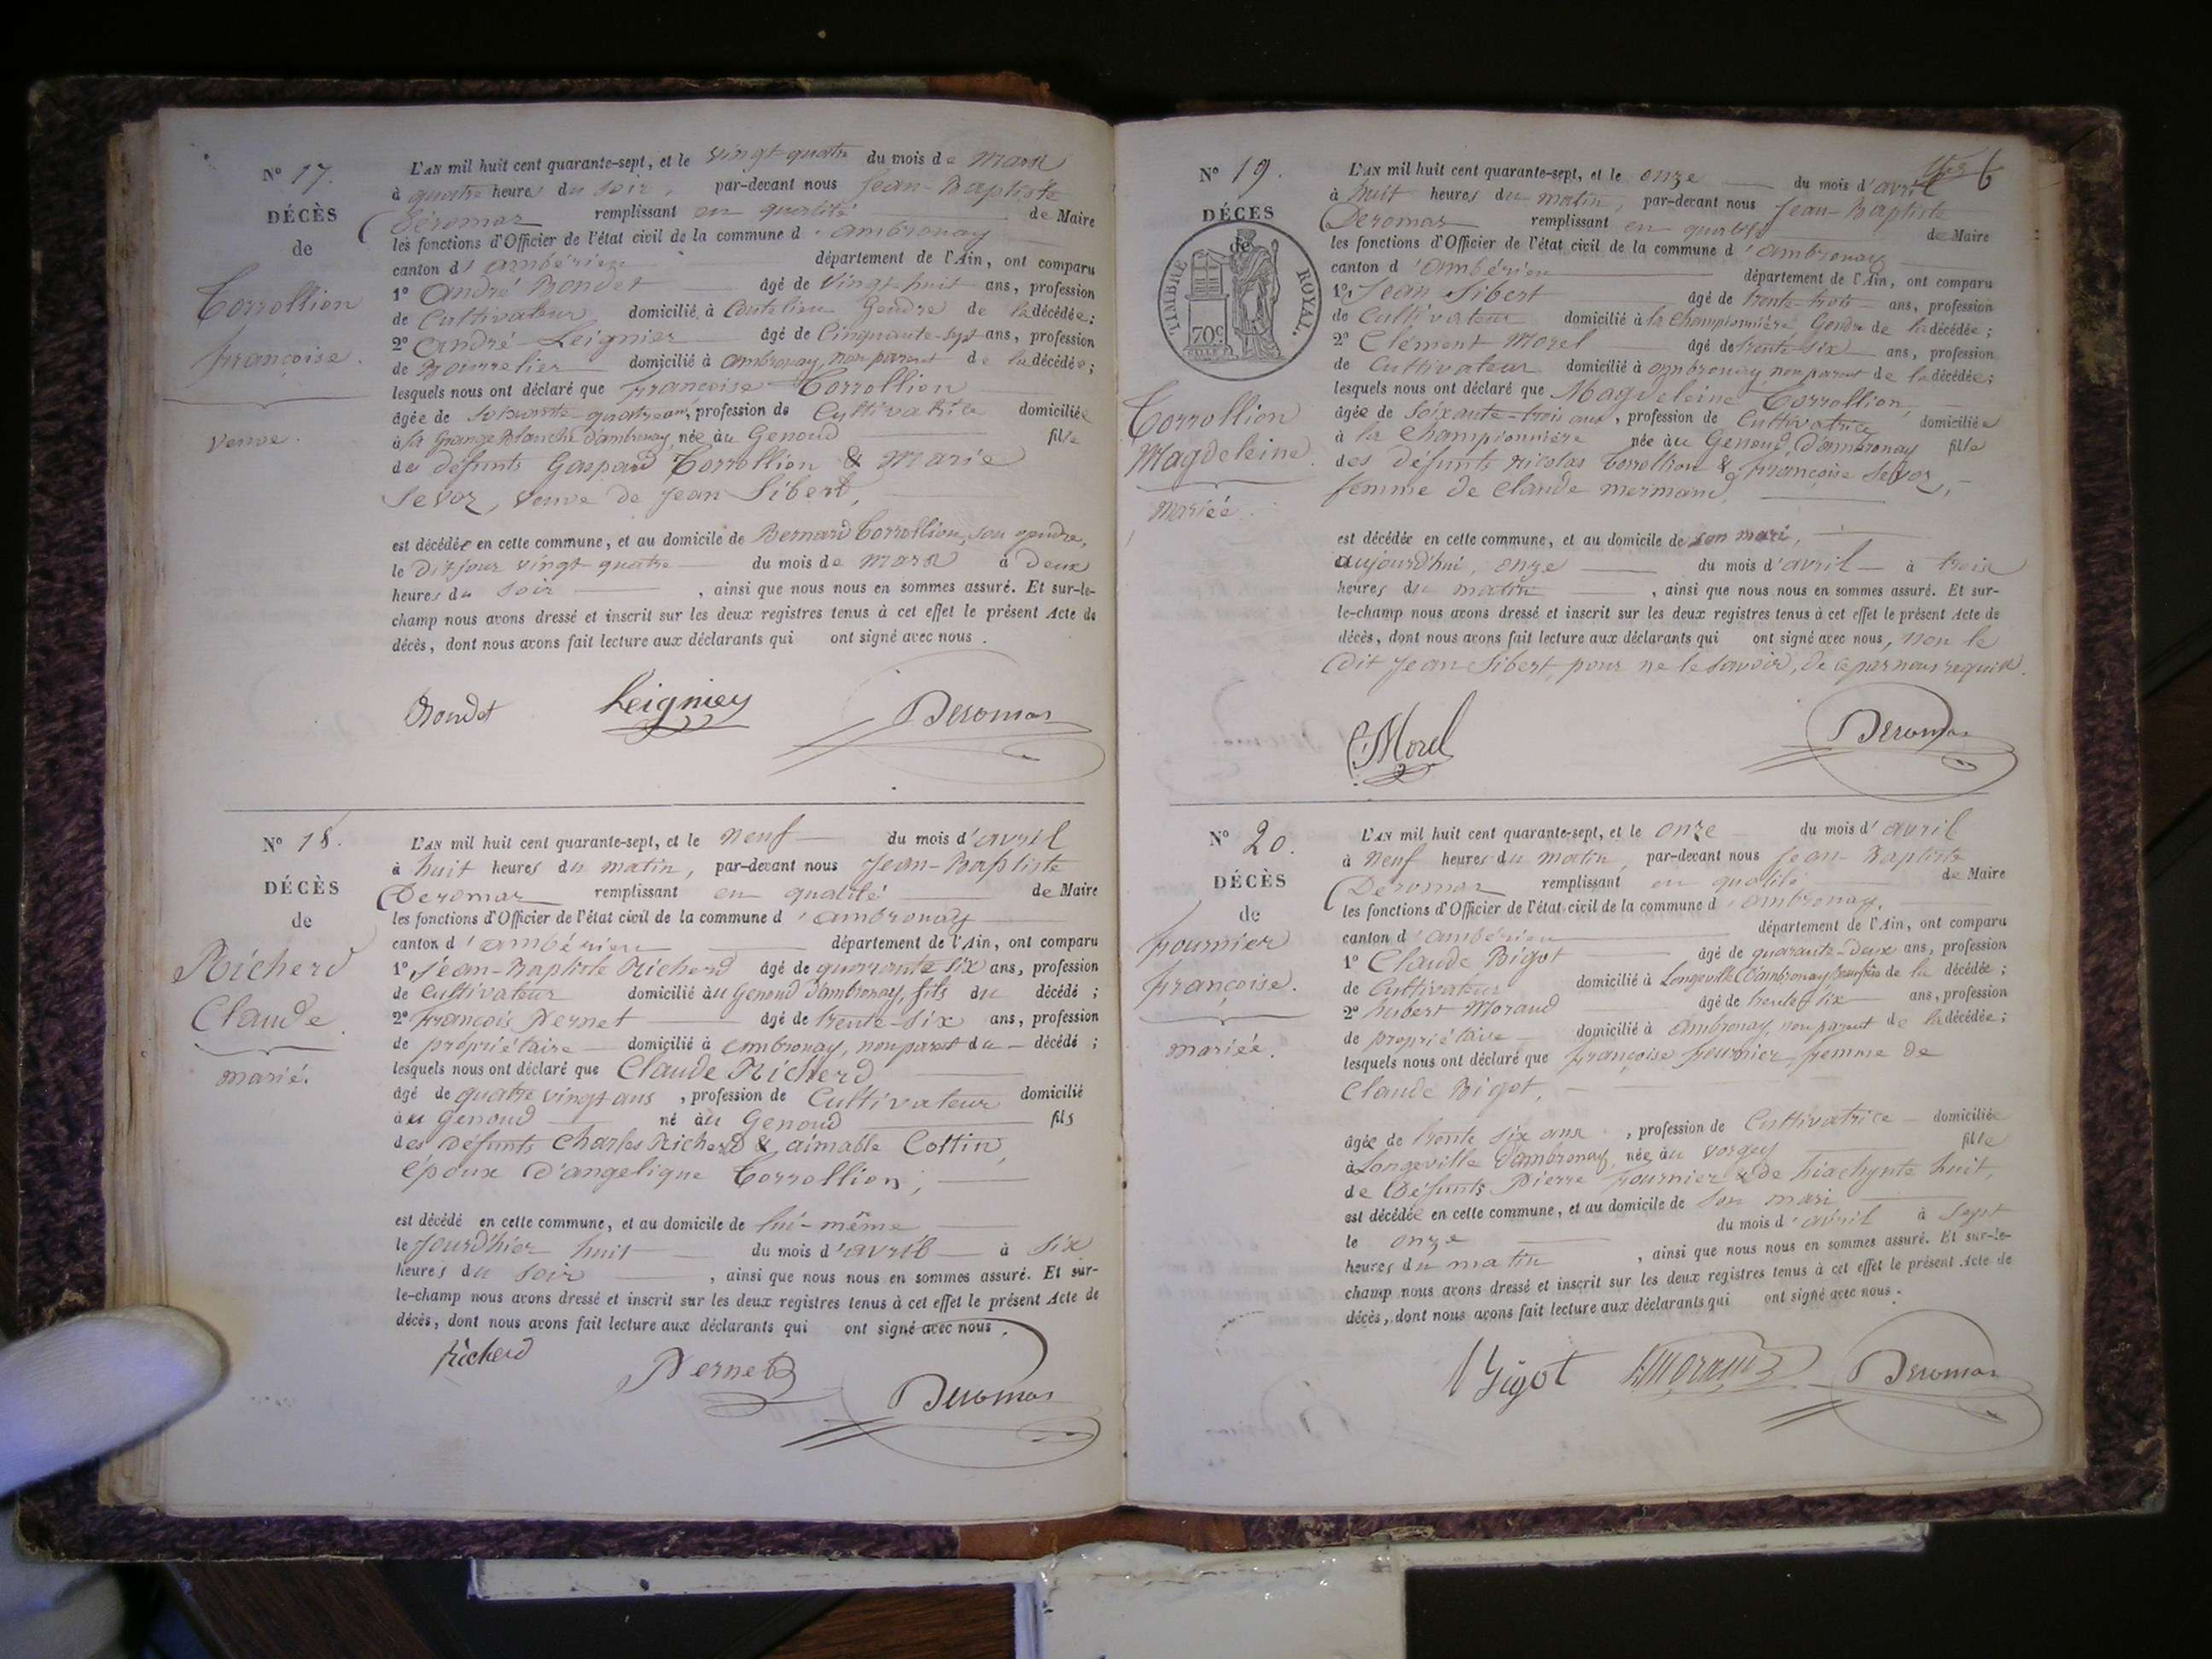 N° 17.
DÉCÈS
de
Corrollion
françoise.
veuve.
L'AN mil huit cent quarante-sept, et le vingt-quatre du mois de Mars
à quatre heures du soir, par-devant nous Jean-Baptiste
Deromas remplissant en qualité de Maire
les fonctions d'Officier de l'état civil de la commune d'ambronay
canton d'ambérieu département de l'Ain, ont comparu
1° André Bondet âgé de vingt-huit ans, profession
de Cultivateur domicilié à Coutelieu Gendre de la décédée;
2° André Leignier âgé de Cinquante-sept ans, profession
de Bourrelier domicilié à ambronay, non parent de la décédée;
lesquels nous ont déclaré que françoise Corrollion
âgée de soixante-quatre ans, profession de Cultivatrice domiciliée
à la Grange Blanche d'ambronay, née au Genoud fille
des défunts Gaspard Corrollion & Marie
Sevoz, veuve de Jean Sibert,
est décédée en cette commune, et au domicile de Bernard Corrollion, son gendre,
le dit jour vingt quatre du mois de Mars à Deux
heures du soir, ainsi que nous nous en sommes assuré. Et sur-le-
champ nous avons dressé et inscrit sur les deux registres tenus à cet effet le présent Acte de
décès, dont nous avons fait lecture aux déclarants qui ont signé avec nous.
Bondet Leignier Deromas
N° 18.
DÉCÈS
de
Richerd
Claude.
marié.
L'AN mil huit cent quarante-sept, et le neuf du mois d'avril
à huit heures du matin, par-devant nous Jean-Baptiste
Deromas remplissant en qualité de Maire
les fonctions d'Officier de l'état civil de la commune d'ambronay
canton d'ambérieu département de l'Ain, ont comparu
1° Jean-Baptiste Richerd âgé de quarante six ans, profession
de Cultivateur domicilié au Genoud d'ambronay, fils du décédé;
2° françois Pernet âgé de trente-six ans, profession
de propriétaire domicilié à ambronay, non parent du décédé;
lesquels nous ont déclaré que Claude Richerd
âgé de quatre vingt ans, profession de Cultivateur domicilié
au Genoud né au Genoud fils
des défunts Charles Richerd & aimable Cottin,
époux d'angelique Corrollion,
est décédé en cette commune, et au domicile de lui-même
le jourd'hier huit du mois d'avril à six
heures du soir, ainsi que nous nous en sommes assuré. Et sur-
le-champ nous avons dressé et inscrit sur les deux registres tenus à cet effet le présent Acte de
décès, dont nous avons fait lecture aux déclarants qui ont signé avec nous.
Richerd Pernet Deromas
6
N° 19.
DÉCÈS
de
TIMBRE ROYAL.
70c
Corrollion
Magdeleine.
mariée.
L'AN mil huit cent quarante-sept, et le onze du mois d'avril
à huit heures du matin, par-devant nous Jean-Baptiste
Deromas remplissant en qualité de Maire
les fonctions d'Officier de l'état civil de la commune d'ambronay
canton d'ambérieu département de l'Ain, ont comparu
1° Jean Sibert âgé de trente-trois ans, profession
de Cultivateur domicilié à la Championnière, Gendre de la décédée;
2° Clément Morel âgé de trente-six ans, profession
de Cultivateur domicilié à ambronay, non parent de la décédée;
lesquels nous ont déclaré que Magdeleine Corrollion
âgée de soixante-trois ans, profession de Cultivatrice domiciliée
à la Championnière née au Genoud, d'ambronay fille
des défunts Nicolas Corrollion & françoise Sevoz,
femme de Claude mermand,
est décédée en cette commune, et au domicile de son mari,
aujourd'hui, onze du mois d'avril à trois
heures du matin, ainsi que nous nous en sommes assuré. Et sur-
le-champ nous avons dressé et inscrit sur les deux registres tenus à cet effet le présent Acte de
décès, dont nous avons fait lecture aux déclarants qui ont signé avec nous, non le
dit Jean Sibert, pour ne le savoir, de ce par nous requis.
C. Morel Deromas
N° 20.
DÉCÈS
de
fournier
françoise.
mariée.
L'AN mil huit cent quarante-sept, et le onze du mois d'avril
à neuf heures du matin, par-devant nous Jean-Baptiste
Deromas remplissant en qualité de Maire
les fonctions d'Officier de l'état civil de la commune d'ambronay,
canton d'ambérieu département de l'Ain, ont comparu
1° Claude Bigot âgé de quarante-deux ans, profession
de Cultivateur domicilié à Longeville d'ambronay de la décédée;
2° hubert Morand âgé de trente six ans, profession
de propriétaire domicilié à ambronay, non parent de la décédée;
lesquels nous ont déclaré que françoise fournier, femme de
Claude Bigot,
âgée de trente six ans, profession de Cultivatrice domiciliée
à Longeville d'ambronay, née au vorgey fille
de défunts Pierre fournier & de hiachynte huit,
est décédée en cette commune, et au domicile de son mari
le onze du mois d'avril à sept
heures du matin, ainsi que nous nous en sommes assuré. Et sur-le-
champ nous avons dressé et inscrit sur les deux registres tenus à cet effet le présent Acte de
décès, dont nous avons fait lecture aux déclarants qui ont signé avec nous.
Bigot Morand Deromas